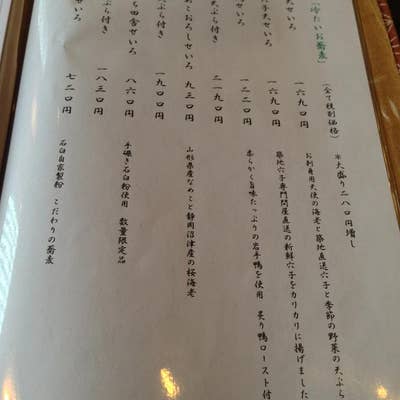 「冷たいお蕎麦」 (全て税別価格) ※大盛り二八〇円増し
天せいろ 一六九〇円 お刺身用天使の海老と築地直送穴子と季節の野菜の天ぷら
天せいろ 一六九〇円 築地穴子専門問屋直送の新鮮穴子をカリカリに揚げました
せいろ 一二二〇円 柔らかく旨味たっぷりの岩手鴨を使用 炙り鴨ロースト付
天ぷら付き 二一九〇円
おろしせいろ 九三〇円 山形県産なめこと静岡沼津産の桜海老
天ぷら付き 一九〇〇円
田舎せいろ 八六〇円 手碾き石臼粉使用 数量限定品
ぷら付き 一八三〇円
七二〇円 石臼自家製粉 こだわりの蕎麦